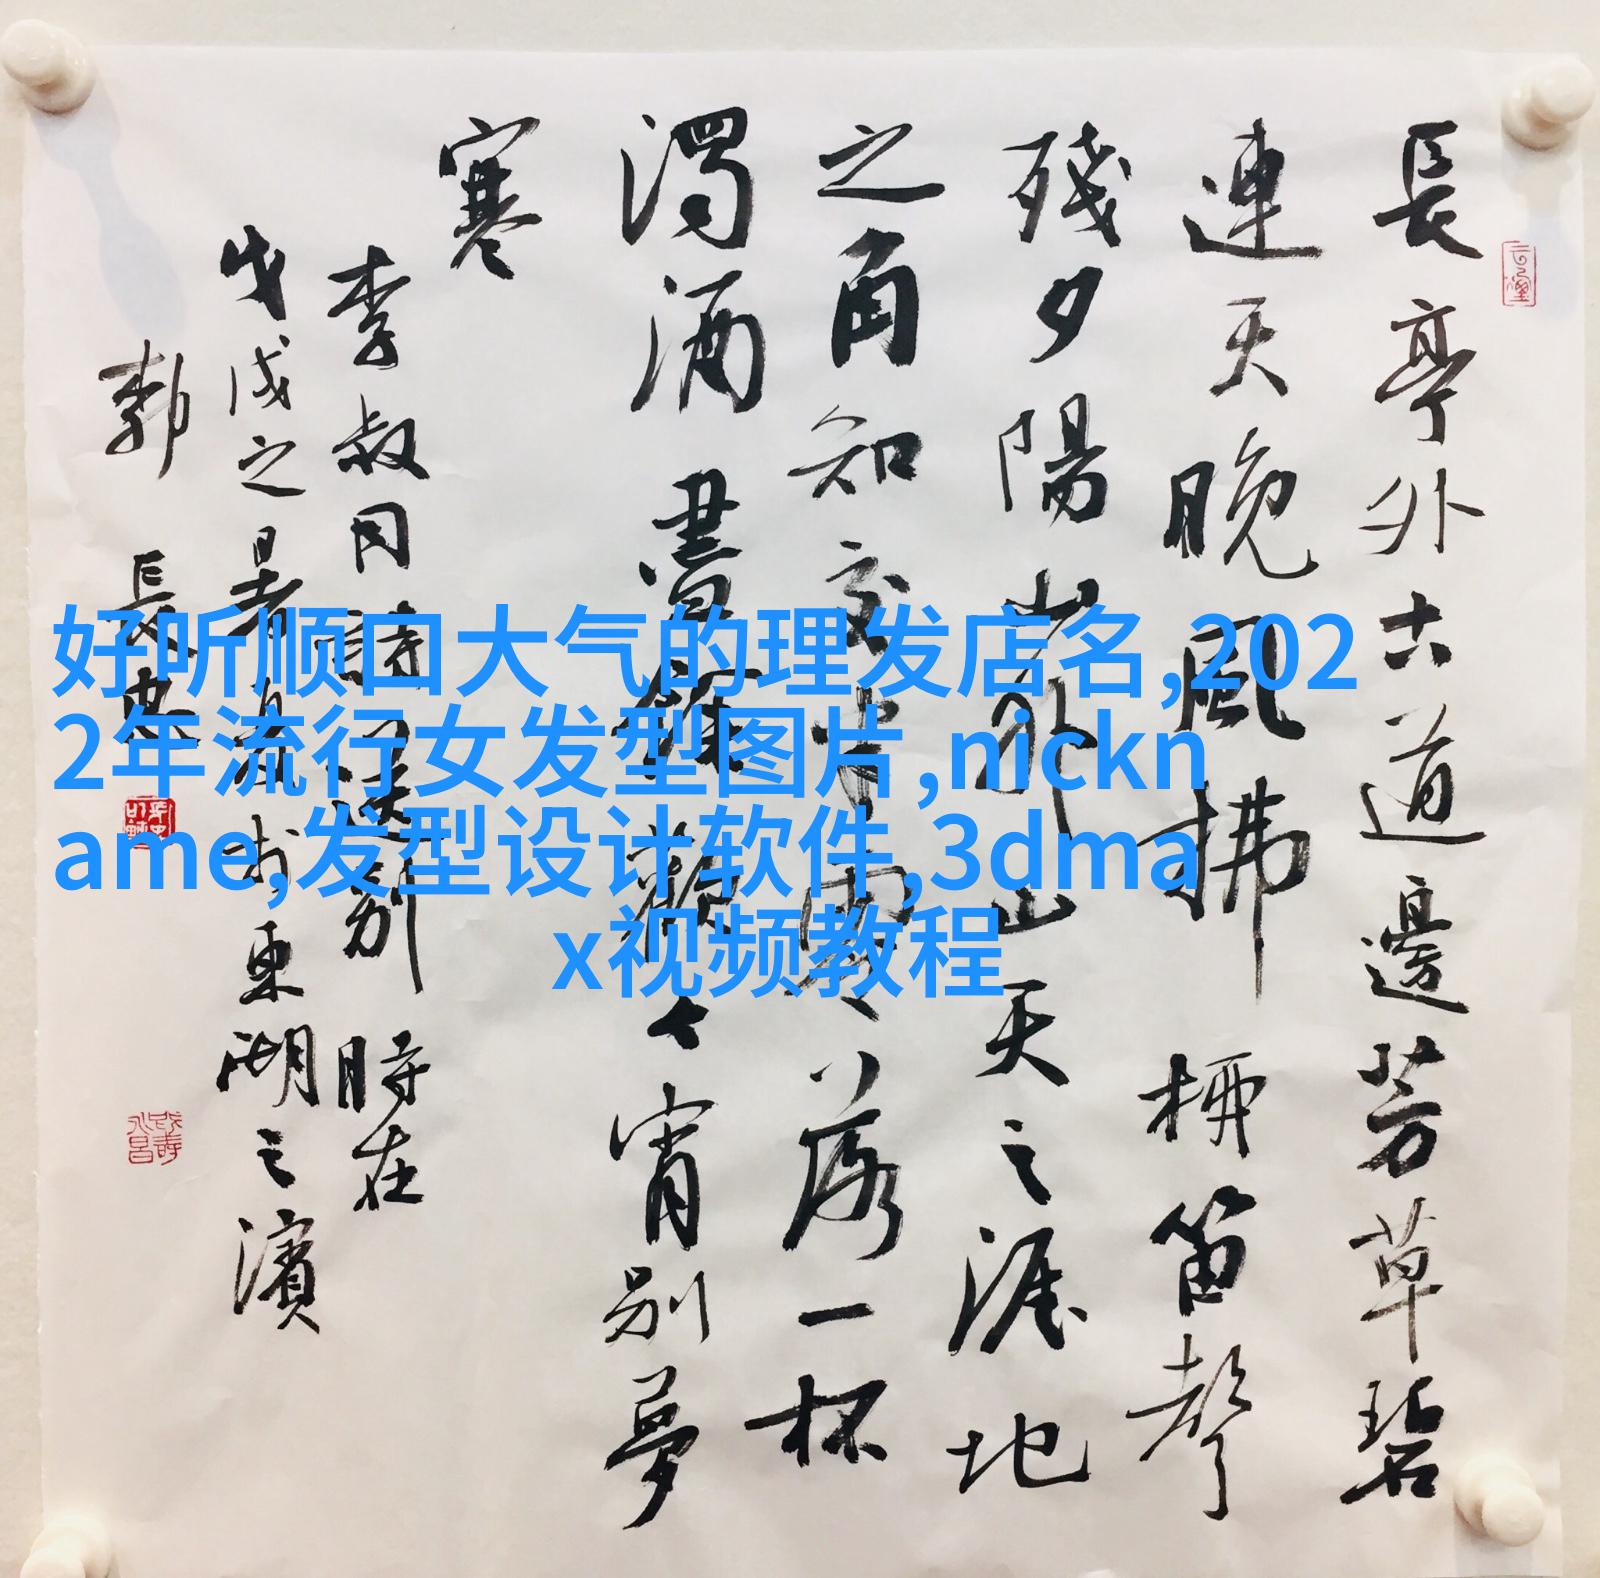 長亭外古道邊芳草碧
連天晚風拂柳笛聲
殘夕陽山外山天之涯地
之角知交半零落一杯
濁酒盡餘歡今宵別夢
寒
李叔同詩送別 時在
戊戌之暑東湖之濱
長
好听顺口大气的理发店名,202
2年流行女发型图片,nickn
ame,发型设计软件,3dma
x视频教程